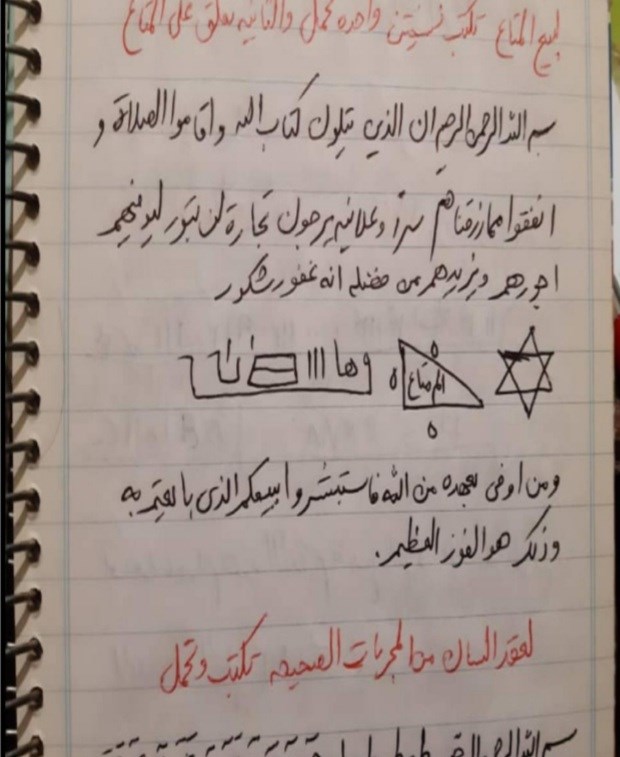 لبيع المتاع تكتب نسختين واحده تحمل والثانيه تعلق على المتاع
بسم الله الرحمن الرحيم ان الذين يتلون كتاب الله واقاموا الصلاة و
انفقوا مما رزقناهم سراً وعلانيه يرجون تجارة لن تبور ليوفيهم
اجورهم ويزيدهم من فضله انه غفور شكور
وها ااا
المتاع
ومن اوفى بعهده من الله فاستبشروا ببيعكم الذي بايعتم به
وذلك هو الفوز العظيم.
لعقد اللسان من المجربات الصحيحه تكتب وتحمل
بسم الله الرحمن الرحيم